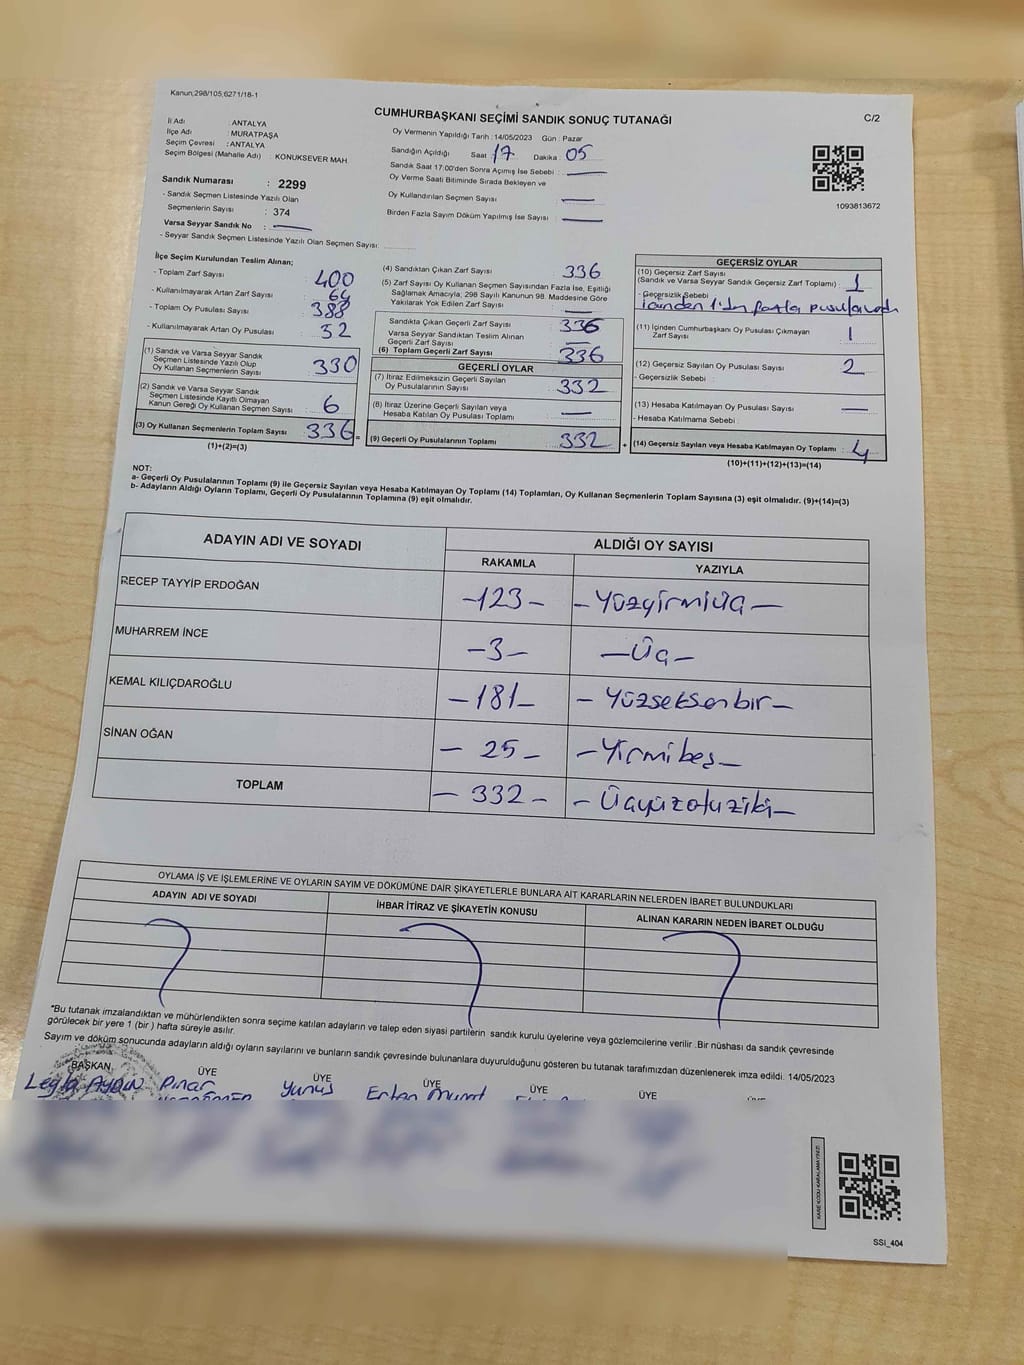 Kanun;298/105;6271/18-1
CUMHURBAŞKANI SEÇİMİ SANDIK SONUÇ TUTANAĞI
C/2
İl Adı : ANTALYA
İlçe Adı : MURATPAŞA
Seçim Çevresi : ANTALYA
Seçim Bölgesi (Mahalle Adı) : KONUKSEVER MAH.
Sandık Numarası : 2299
- Sandık Seçmen Listesinde Yazılı Olan
Seçmenlerin Sayısı : 374
Varsa Seyyar Sandık No :
- Seyyar Sandık Seçmen Listesinde Yazılı Olan Seçmen Sayısı:
Oy Vermenin Yapıldığı Tarih : 14/05/2023 Gün : Pazar
Sandığın Açıldığı Saat : 17 Dakika : 05
Sandık Saat 17:00'den Sonra Açımış İse Sebebi :
Oy Verme Saati Bitiminde Sırada Bekleyen ve
Oy Kullandırılan Seçmen Sayısı :
Birden Fazla Sayım Döküm Yapılmış İse Sayısı :
1093813672
İlçe Seçim Kurulundan Teslim Alınan;
- Toplam Zarf Sayısı : 400
- Kullanılmayarak Artan Zarf Sayısı : 64
- Toplam Oy Pusulası Sayısı : 388
- Kullanılmayarak Artan Oy Pusulası : 52
(1) Sandık ve Varsa Seyyar Sandık
Seçmen Listesinde Yazılı Olup
Oy Kullanan Seçmenlerin Sayısı : 330
(2) Sandık ve Varsa Seyyar Sandık
Seçmen Listesinde Kayıtlı Olmayan
Kanun Gereği Oy Kullanan Seçmen Sayısı : 6
(3) Oy Kullanan Seçmenlerin Toplam Sayısı : 336 =
(1)+(2)=(3)
(4) Sandıktan Çıkan Zarf Sayısı : 336
(5) Zarf Sayısı Oy Kullanan Seçmen Sayısından Fazla İse, Eşitliği
Sağlamak Amacıyla, 298 Sayılı Kanunun 98. Maddesine Göre
Yakılarak Yok Edilen Zarf Sayısı :
Sandıkta Çıkan Geçerli Zarf Sayısı : 336
Varsa Seyyar Sandıktan Teslim Alınan
Geçerli Zarf Sayısı
(6) Toplam Geçerli Zarf Sayısı : 336
GEÇERLİ OYLAR
(7) İtiraz Edilmeksizin Geçerli Sayılan
Oy Pusulalarının Sayısı : 332
(8) İtiraz Üzerine Geçerli Sayılan veya
Hesaba Katılan Oy Pusulası Toplamı :
(9) Geçerli Oy Pusulalarının Toplamı : 332 +
GEÇERSİZ OYLAR
(10) Geçersiz Zarf Sayısı
(Sandık ve Varsa Seyyar Sandık Geçersiz Zarf Toplamı) : 1
- Geçersizlik Sebebi :
içinden 1'den fazla pusula
(11) İçinden Cumhurbaşkanı Oy Pusulası Çıkmayan
Zarf Sayısı : 1
(12) Geçersiz Sayılan Oy Pusulası Sayısı : 2
- Geçersizlik Sebebi :
(13) Hesaba Katılmayan Oy Pusulası Sayısı :
- Hesaba Katılmama Sebebi :
(14) Geçersiz Sayılan veya Hesaba Katılmayan Oy Toplamı : 4
(10)+(11)+(12)+(13)=(14)
NOT:
a- Geçerli Oy Pusulalarının Toplamı (9) ile Geçersiz Sayılan veya Hesaba Katılmayan Oy Toplamı (14) Toplamları, Oy Kullanan Seçmenlerin Toplam Sayısına (3) eşit olmalıdır. (9)+(14)=(3)
b- Adayların Aldığı Oyların Toplamı, Geçerli Oy Pusulalarının Toplamına (9) eşit olmalıdır.
ADAYIN ADI VE SOYADI
ALDIĞI OY SAYISI
RAKAMLA YAZIYLA
RECEP TAYYİP ERDOĞAN -123- -Yüzyirmiüç-
MUHARREM İNCE -3- -Üç-
KEMAL KILIÇDAROĞLU -181- -Yüzseksenbir-
SİNAN OĞAN -25- -Yirmibeş-
TOPLAM -332- -Üçyüzotuziki-
OYLAMA İŞ VE İŞLEMLERİNE VE OYLARIN SAYIM VE DÖKÜMÜNE DAİR ŞİKAYETLERLE BUNLARA AİT KARARLARIN NELERDEN İBARET BULUNDUKLARI
ADAYIN ADI VE SOYADI
İHBAR İTİRAZ VE ŞİKAYETİN KONUSU
ALINAN KARARIN NEDEN İBARET OLDUĞU
*Bu tutanak imzalandıktan ve mühürlendikten sonra seçime katılan adayların ve talep eden siyasi partilerin sandık kurulu üyelerine veya gözlemcilerine verilir .Bir nüshası da sandık çevresinde
görülecek bir yere 1 (bir ) hafta süreyle asılır.
Sayım ve döküm sonucunda adayların aldığı oyların sayılarını ve bunların sandık çevresinde bulunanlara duyurulduğunu gösteren bu tutanak tarafımızdan düzenlenerek imza edildi. 14/05/2023
BAŞKAN ÜYE ÜYE ÜYE ÜYE ÜYE
Leyla AYDIN Pınar Yunus Ertan Murat
KARE KODU KARALAMAYINIZ!
SSİ_404